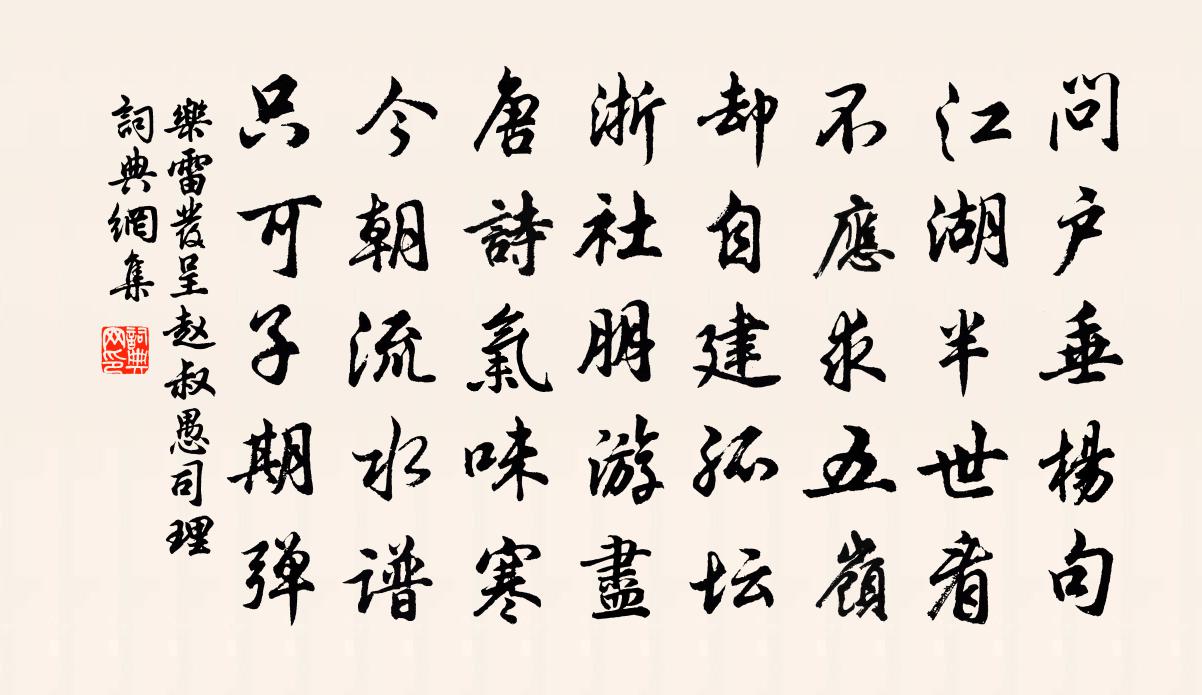 問户垂楊句
江湖半世看
不應求五嶺
却自建孤坛
浙社朋游盡
唐詩氣味寒
今朝流水谱
只可子期弹
樂雷發呈赵叔愚司理
詞典網集
詞典
网印